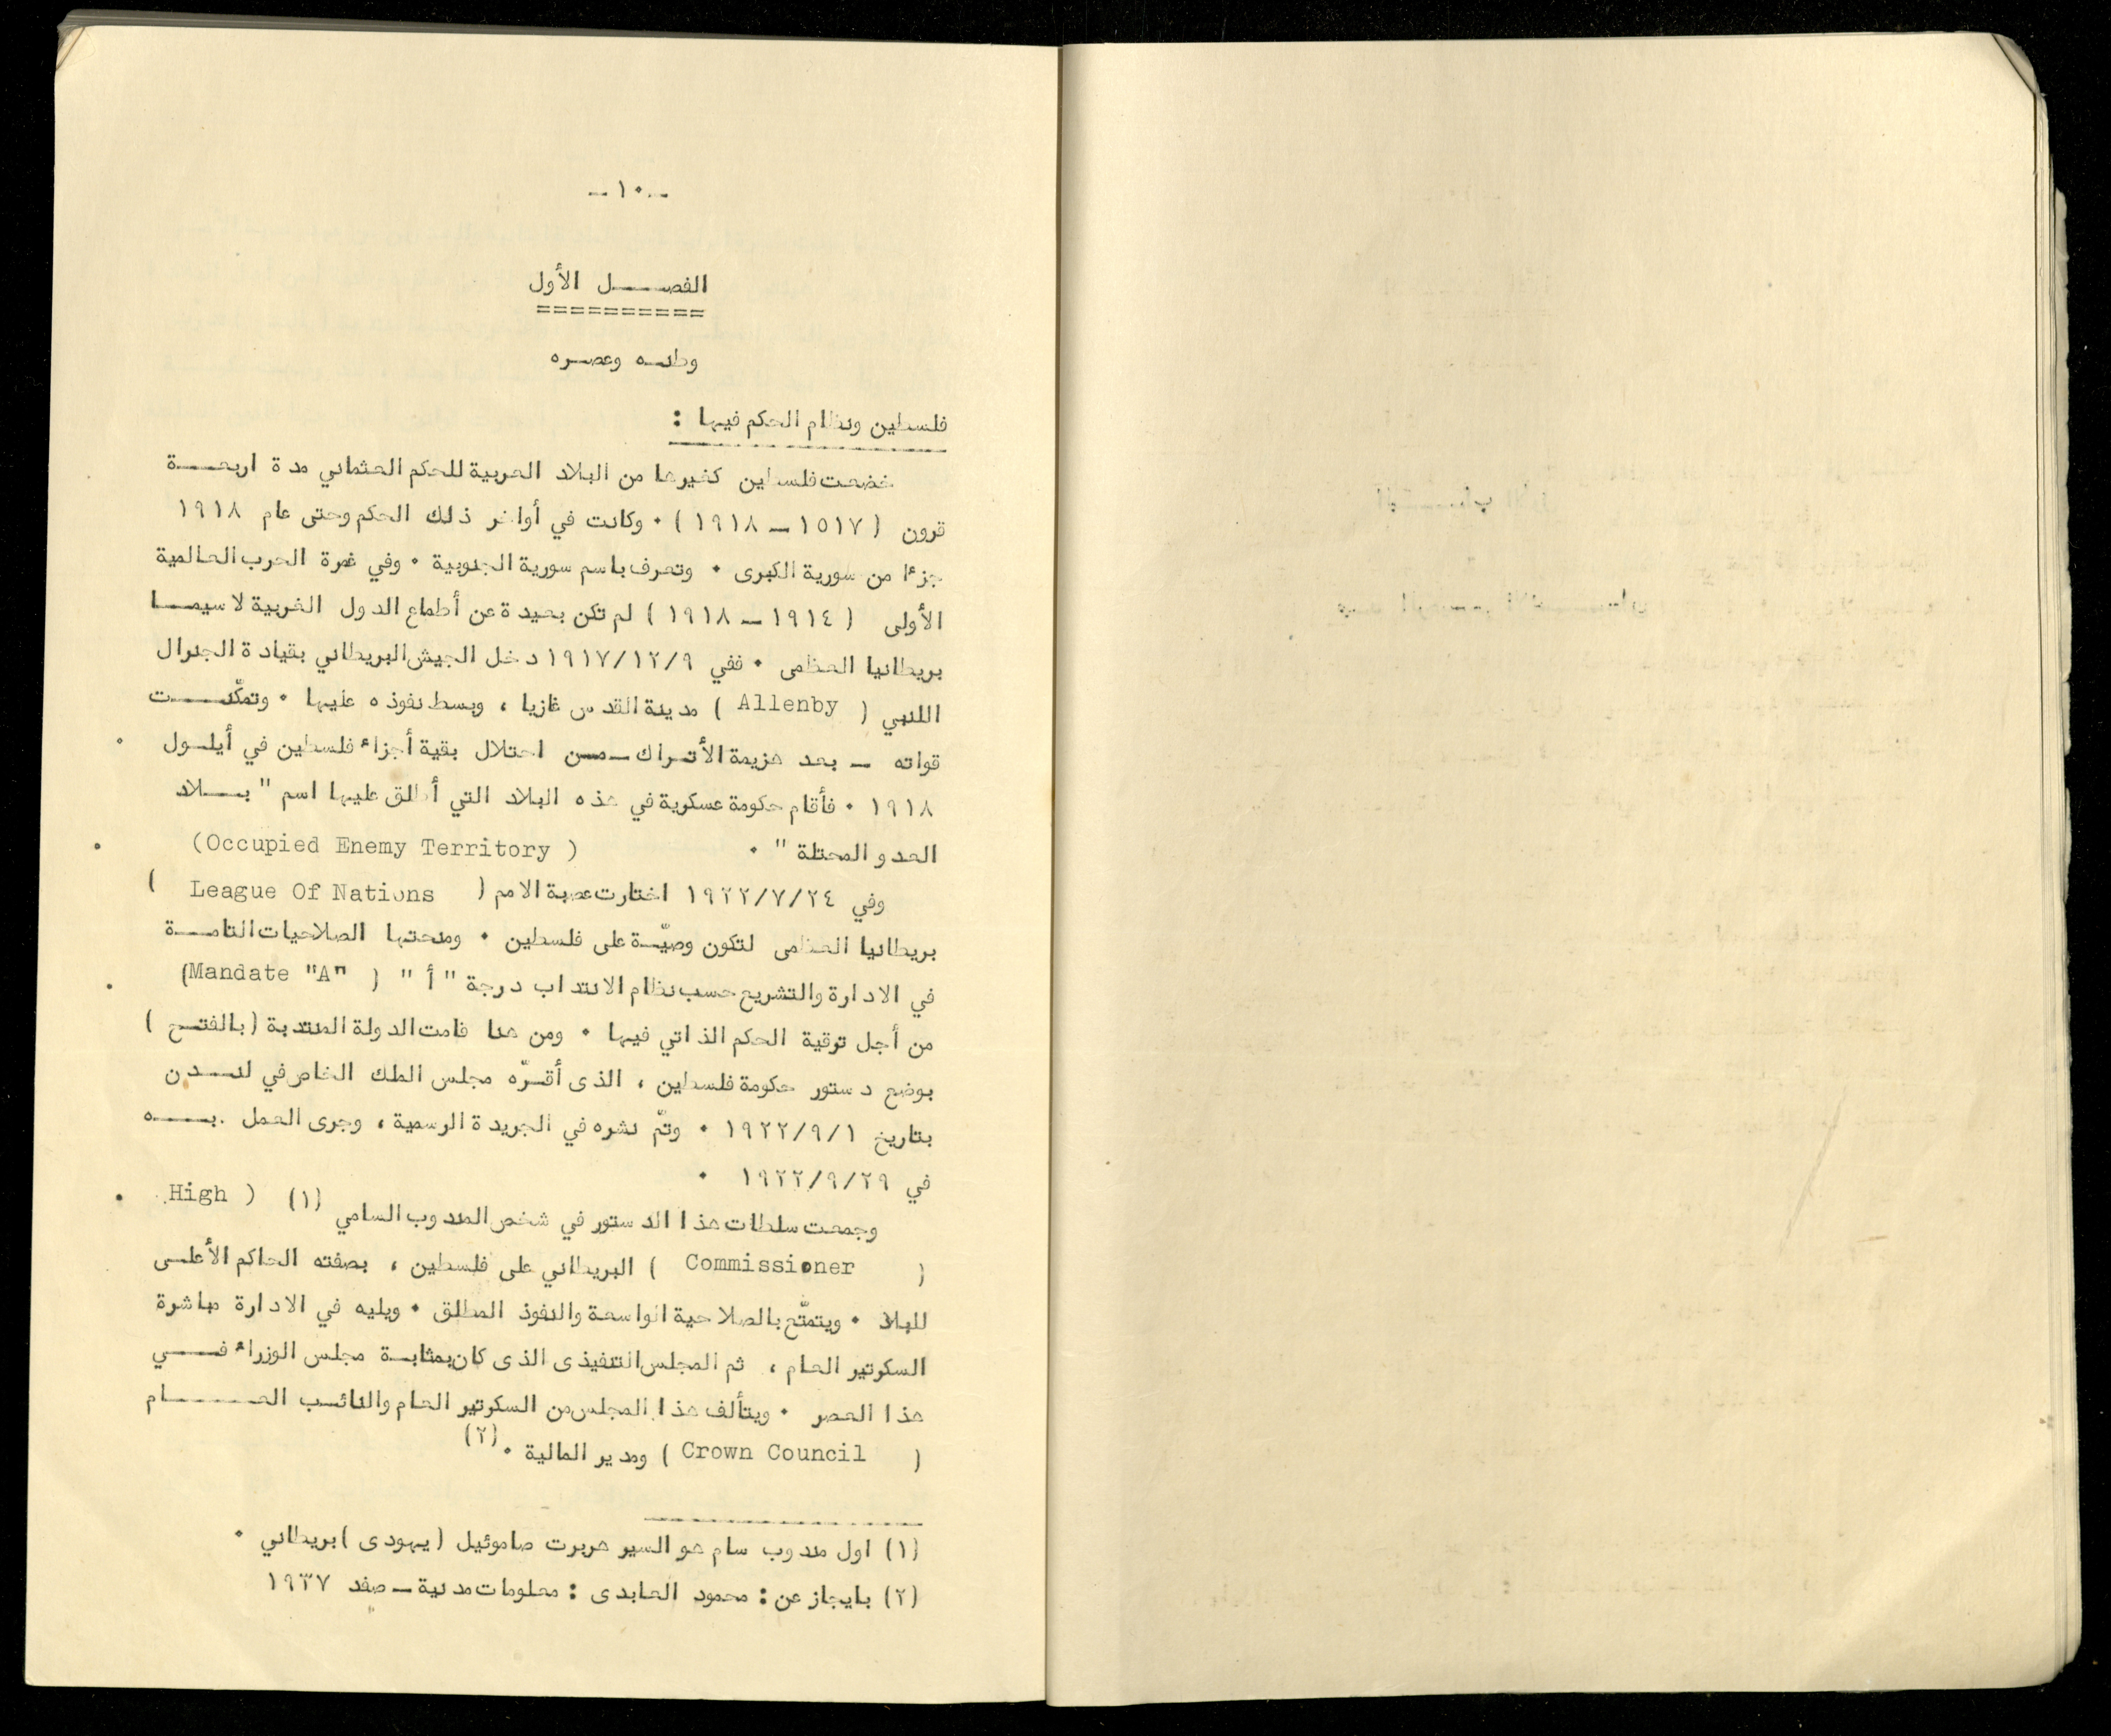 ـ ١٠ ـ
الفصـــــل الأول
==========
وطنـــه وعصــره
فلسطين ونظام الحكم فيها :
خضعت فلسطين كغيرها من البلاد العربية للحكم العثماني مدة اربعـــة
قرون ( ١٥١٧ ــ ١٩١٨ ) ٠ وكانت في أواخر ذلك الحكم وحتى عام ١٩١٨
جزءا من سورية الكبرى ٠ وتعرف باسم سورية الجنوبية ٠ وفي غمرة الحرب العالمية
الأولى ( ١٩١٤ ــ ١٩١٨ ) لم تكن بعيدة عن أطماع الدول الغربية لا سيمــا
بريطانيا العظمى ٠ ففي ١٩١٧/١٢/٩ دخل الجيش البريطاني بقيادة الجنرال
اللنبي ( Allenby ) مدينة القدس غازيا ، وبسط نفوذه عليها ٠ وتمكّنـــت
قواته ــ بعد هزيمة الأتـراك ــ مــن احتلال بقية أجزاء فلسطين في أيلــول
١٩١٨ ٠ فأقام حكومة عسكرية في هذه البلاد التي أطلق عليها اسم " بـــلاد
العدو المحتلة " ٠ (Occupied Enemy Territory ) ٠
وفي ١٩٢٢/٧/٢٤ اختارت عصبة الامم ( League Of Nations )
بريطانيا العظمى لتكون وصيّــة على فلسطين ٠ ومنحتها الصلاحيات التامـــة
في الادارة والتشريع حسب نظام الانتداب درجة " أ " ( Mandate "A") ٠
من أجل ترقية الحكم الذاتي فيها ٠ ومن هنا قامت الدولة المنتدبة ( بالفتــح )
بوضع دستور حكومة فلسطين ، الذى أقــرّه مجلس الملك الخاص في لنــدن
بتاريخ ١٩٢٢/٩/١ ٠ وتمّ نشره في الجريدة الرسمية ، وجرى العمل بــــه
في ١٩٢٢/٩/٢٩ ٠
وجمعت سلطات هذا الدستور في شخص المندوب السامي (١) ( High ٠
( Commissioner ) البريطاني على فلسطين ، بصفته الحاكم الأعلــى
للبلاد ٠ ويتمتّع بالصلاحية الواسعة والنفوذ المطلق ٠ ويليه في الادارة مباشرة
السكرتير العام ، ثم المجلس التنفيذى الذى كان بمثابــة مجلس الوزراء فــــي
هذا العصر ٠ ويتألف هذا المجلس من السكرتير العام والنائــب العـــــــام
( Crown Council ) ومدير المالية ٠ (٢)
(١) اول مندوب سام هو السير هربرت صاموئيل ( يهودى ) بريطاني ٠
(٢) بايجاز عن : محمود العابدى : معلومات مدنية ــ صفد ١٩٣٧